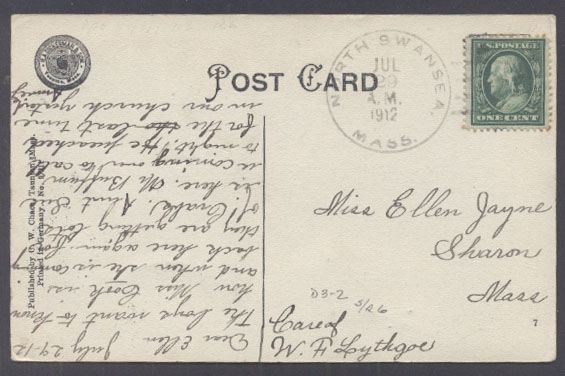 POST CARD
NORTH SWANSEA,
JUL
29
A.M.
1912
MASS.
U.S. POSTAGE
ONE CENT
Miss Ellen Jayne
Sharon
Mass
Care of
W. F. Lythgoe
D3-2
5/26
7
July 29-12
Dear Ellen
The boys want to know
how Miss Cook is
and when she is coming
back here again.
they are getting lots
of crabs. Aunt
is here. Mr Buffum
is coming over to call
to night. He preached
for the last time
in our church yesterday
Published by F. W. Chase, Taunton, Mass.
Printed in Germany No.